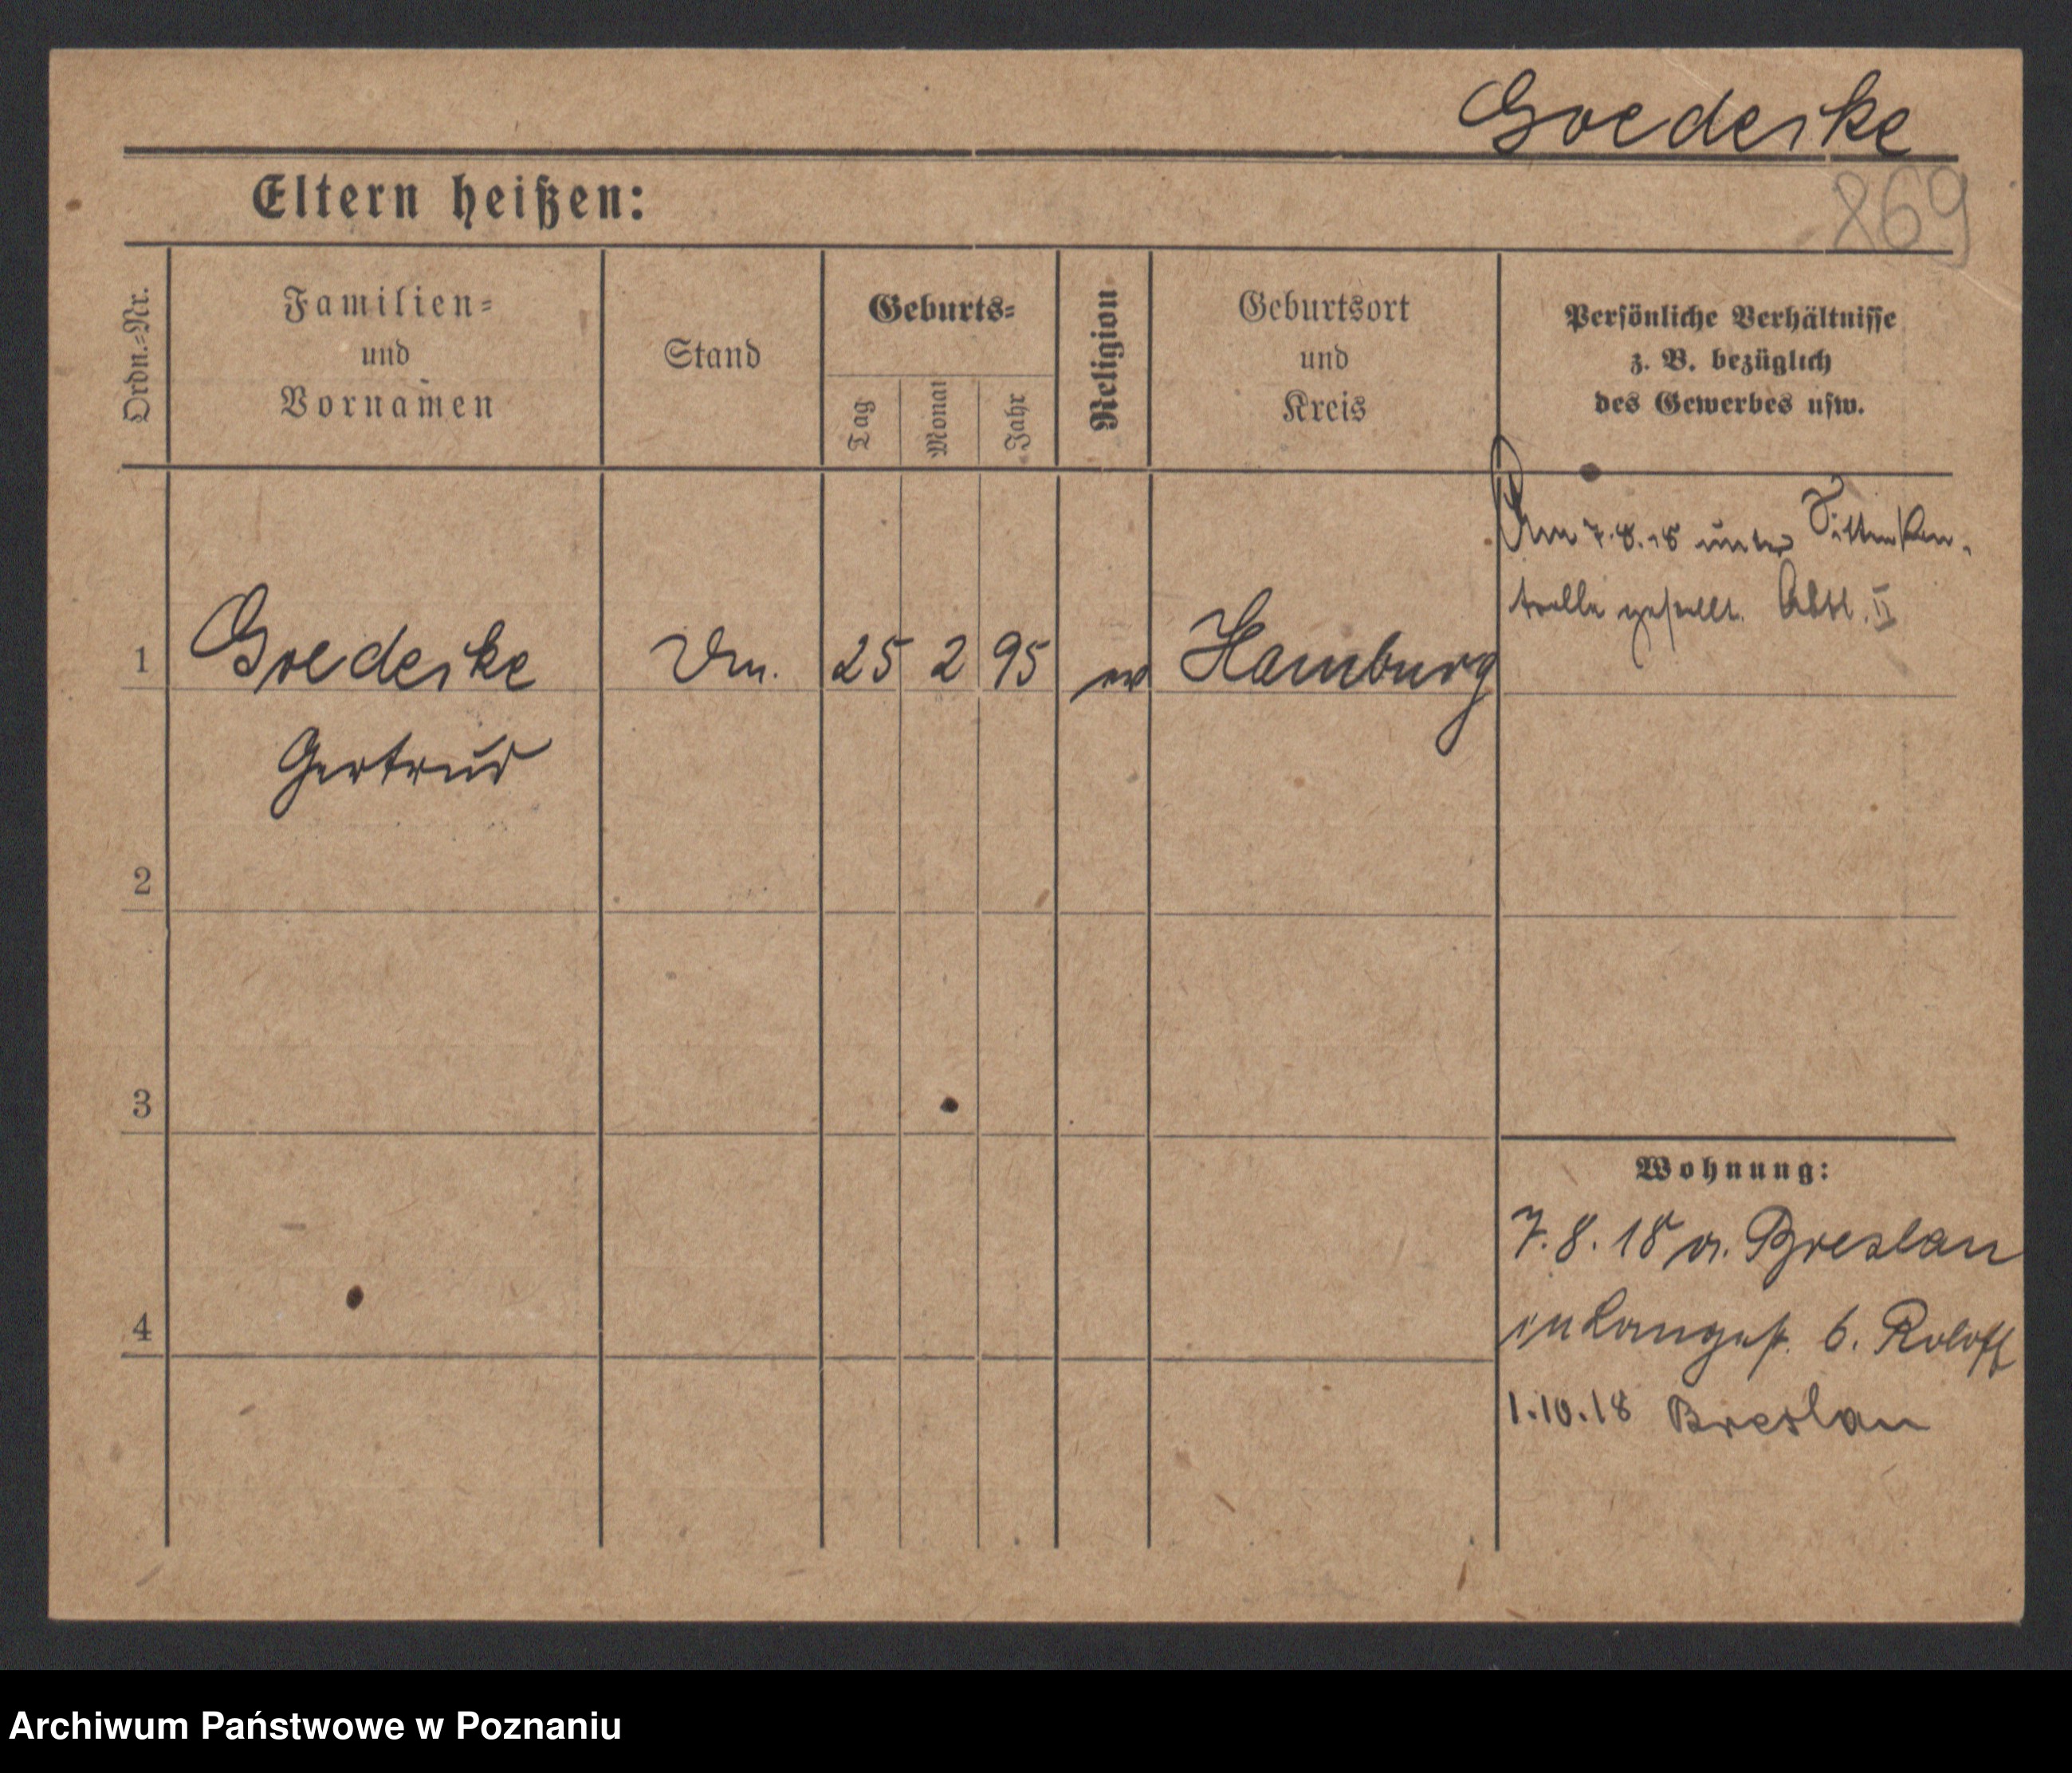 Goedecke
Eltern heißen:
869
Ordn.=Nr.
Familien=
und
Vornamen
Stand
Geburts=
Tag
Monat
Jahr
Religion
Geburtsort
und
Kreis
Persönliche Verhältnisse
z. B. bezüglich
des Gewerbes usw.
Am 7.8.18 unter Sittenkon-
trolle gestellt. Abtl. II
1 Goedecke 25 2 95 ev Hamburg
Gertrud
2
3
4
Wohnung:
7.8.18 v. Breslau
in Langest. 6. Roloff
1.10.18 Breslau
Archiwum Państwowe w Poznaniu